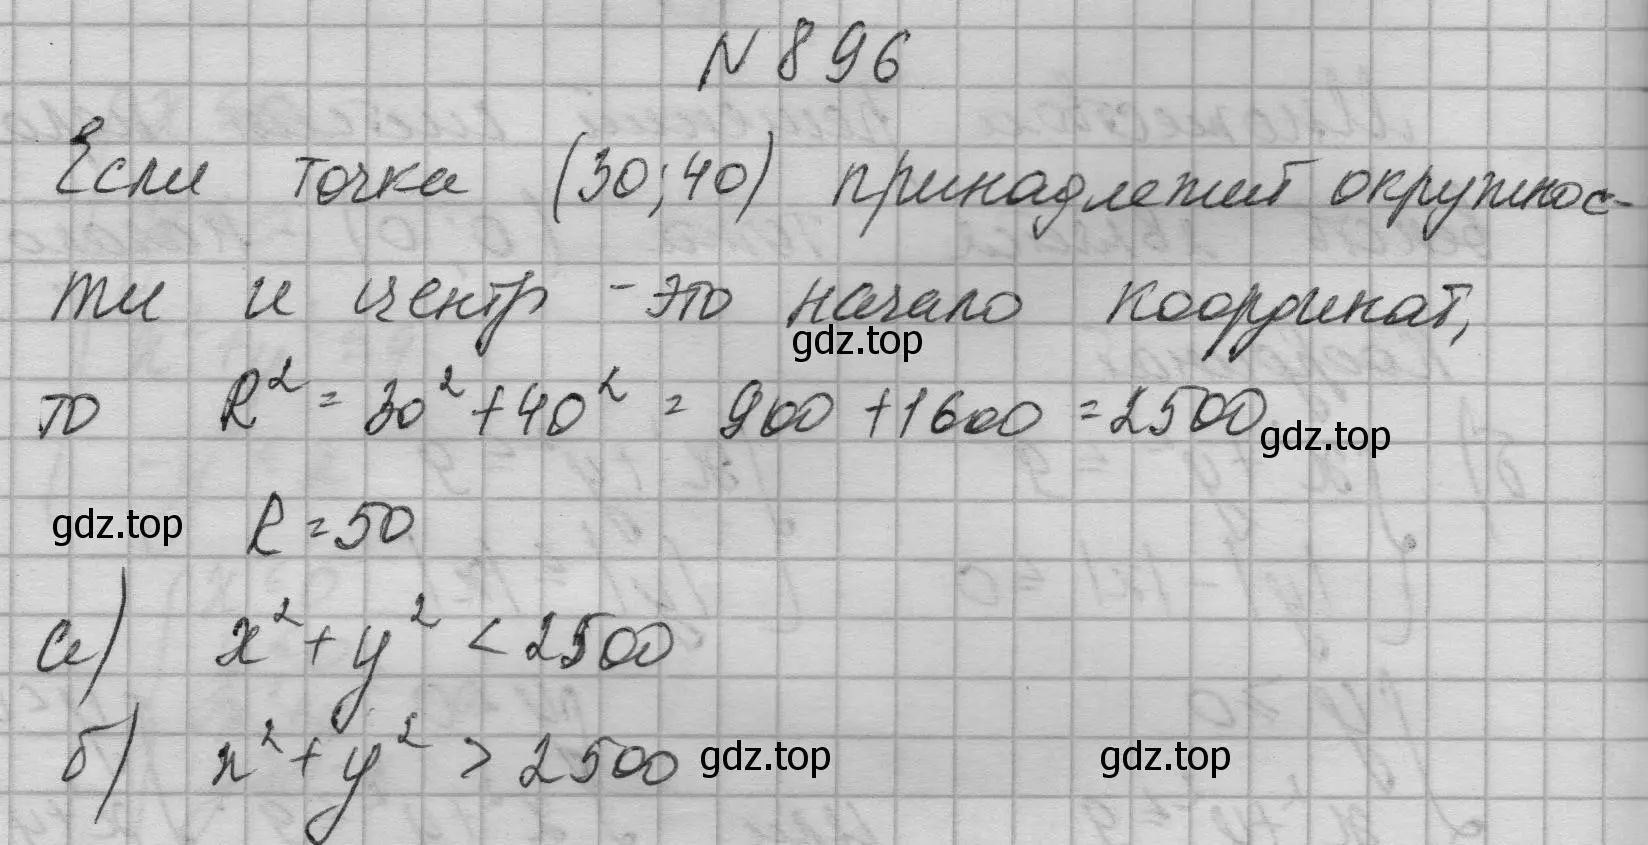 N 896
Если точка (30; 40) принадлежит окружнос-
ти и центр - это начало координат,
gdz.top
то R² = 30² + 40² = 900 + 1600 = 2500
gdz.top
gdz.top
R = 50
а) x² + y² < 2500
б) x² + y² > 2500
gdz.top
gdz.top